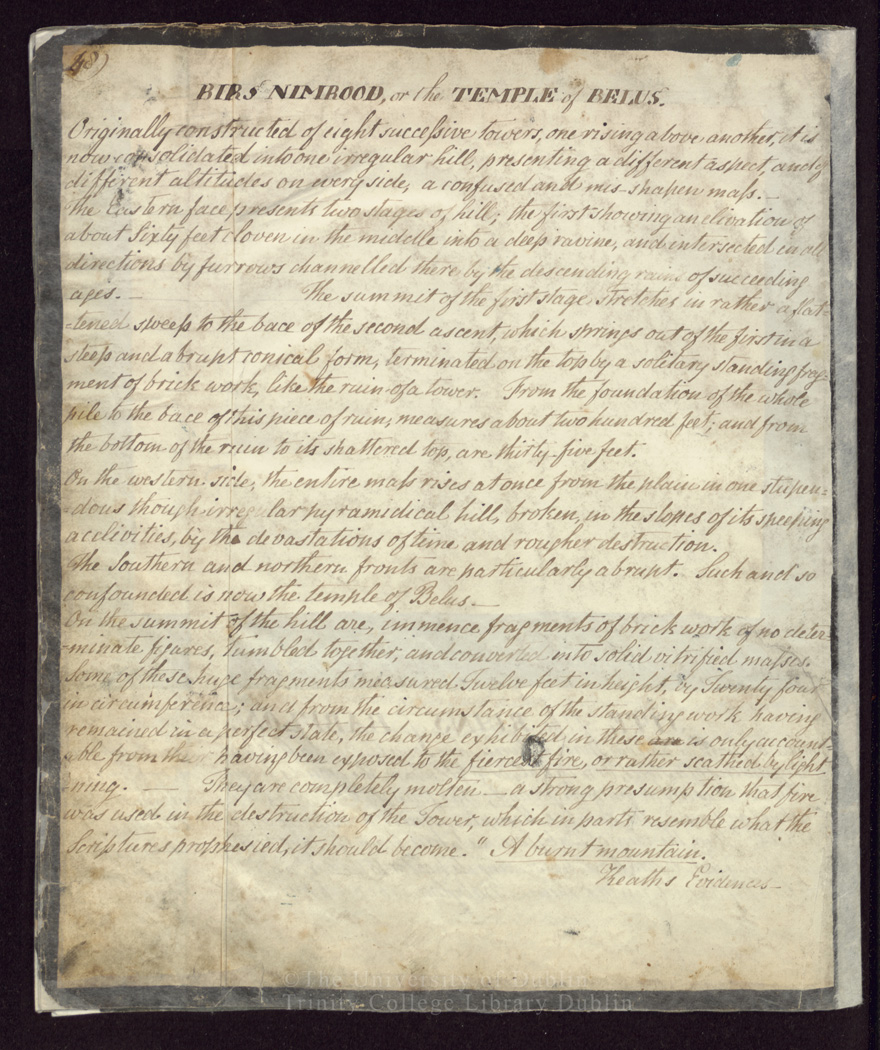 48)
BIRS NIMROOD, or the TEMPLE of BELUS.
Originally constructed of eight successive towers, one rising above another, it is
now consolidated into one irregular hill, presenting a different aspect, and of
different altitudes on every side, a confused and mis-shapen mass.—
The Eastern face presents two stages of hill; the first showing an elivation of
about Sixty feet cloven in the middle into a deep ravine, and intersected in all
directions by furrows channelled there by the descending rains of succeeding
ages.— The summit of the first stage stretches in rather a flat-
-tened sweep to the bace of the second ascent, which springs out of the first in a
steep and abrupt conical form, terminated on the top by a solitary standing frag-
ment of brick work, like the ruin of a tower. From the foundation of the whole
pile to the bace of this piece of ruin, measures about two hundred feet; and from
the bottom of the ruin to its shattered top, are thirty-five feet.
On the western side, the entire mass rises at once from the plain in one stupen-
-dous though irregular pyramidical hill, broken, in the slopes of its sweeping
acclivities, by the devastations of time and rougher destruction.
The Southern and northern fronts are particularly abrupt. Such and so
confounded is now the temple of Belus.—
On the summit of the hill are, immence fragments of brick work of no deter-
-minate figures, tumbled together, and converted into solid vitrified masses.
Some of these huge fragments measured Twelve feet in height, by Twenty four
in circumference; and from the circumstance of the standing work having
remained in a perfect state, the change exhibited in these is only account-
-able from their having been exposed to the fiercest fire, or rather scathed by light
-ning. — They are completely molten — a strong presumption that fire
was used in the destruction of the Tower, which in parts resemble what the
Scriptures prophesied, it should become. "A burnt mountain.
Keath's Evidences—
© The University of Dublin
Trinity College Library Dublin